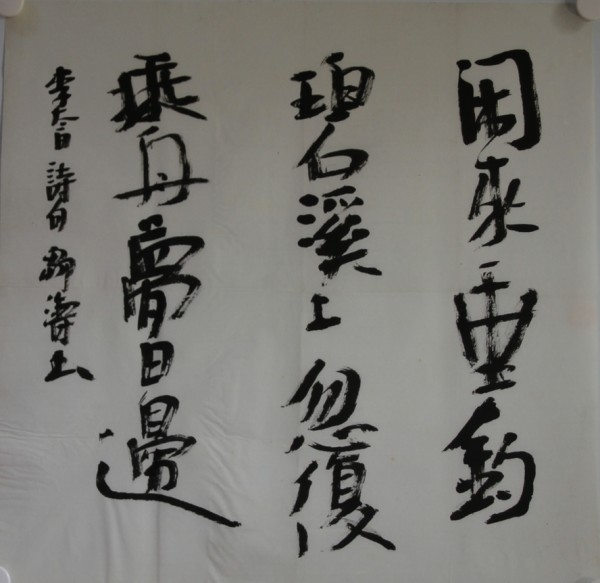 閑来垂釣
碧溪上忽復
乘舟夢日邊
李太白詩句